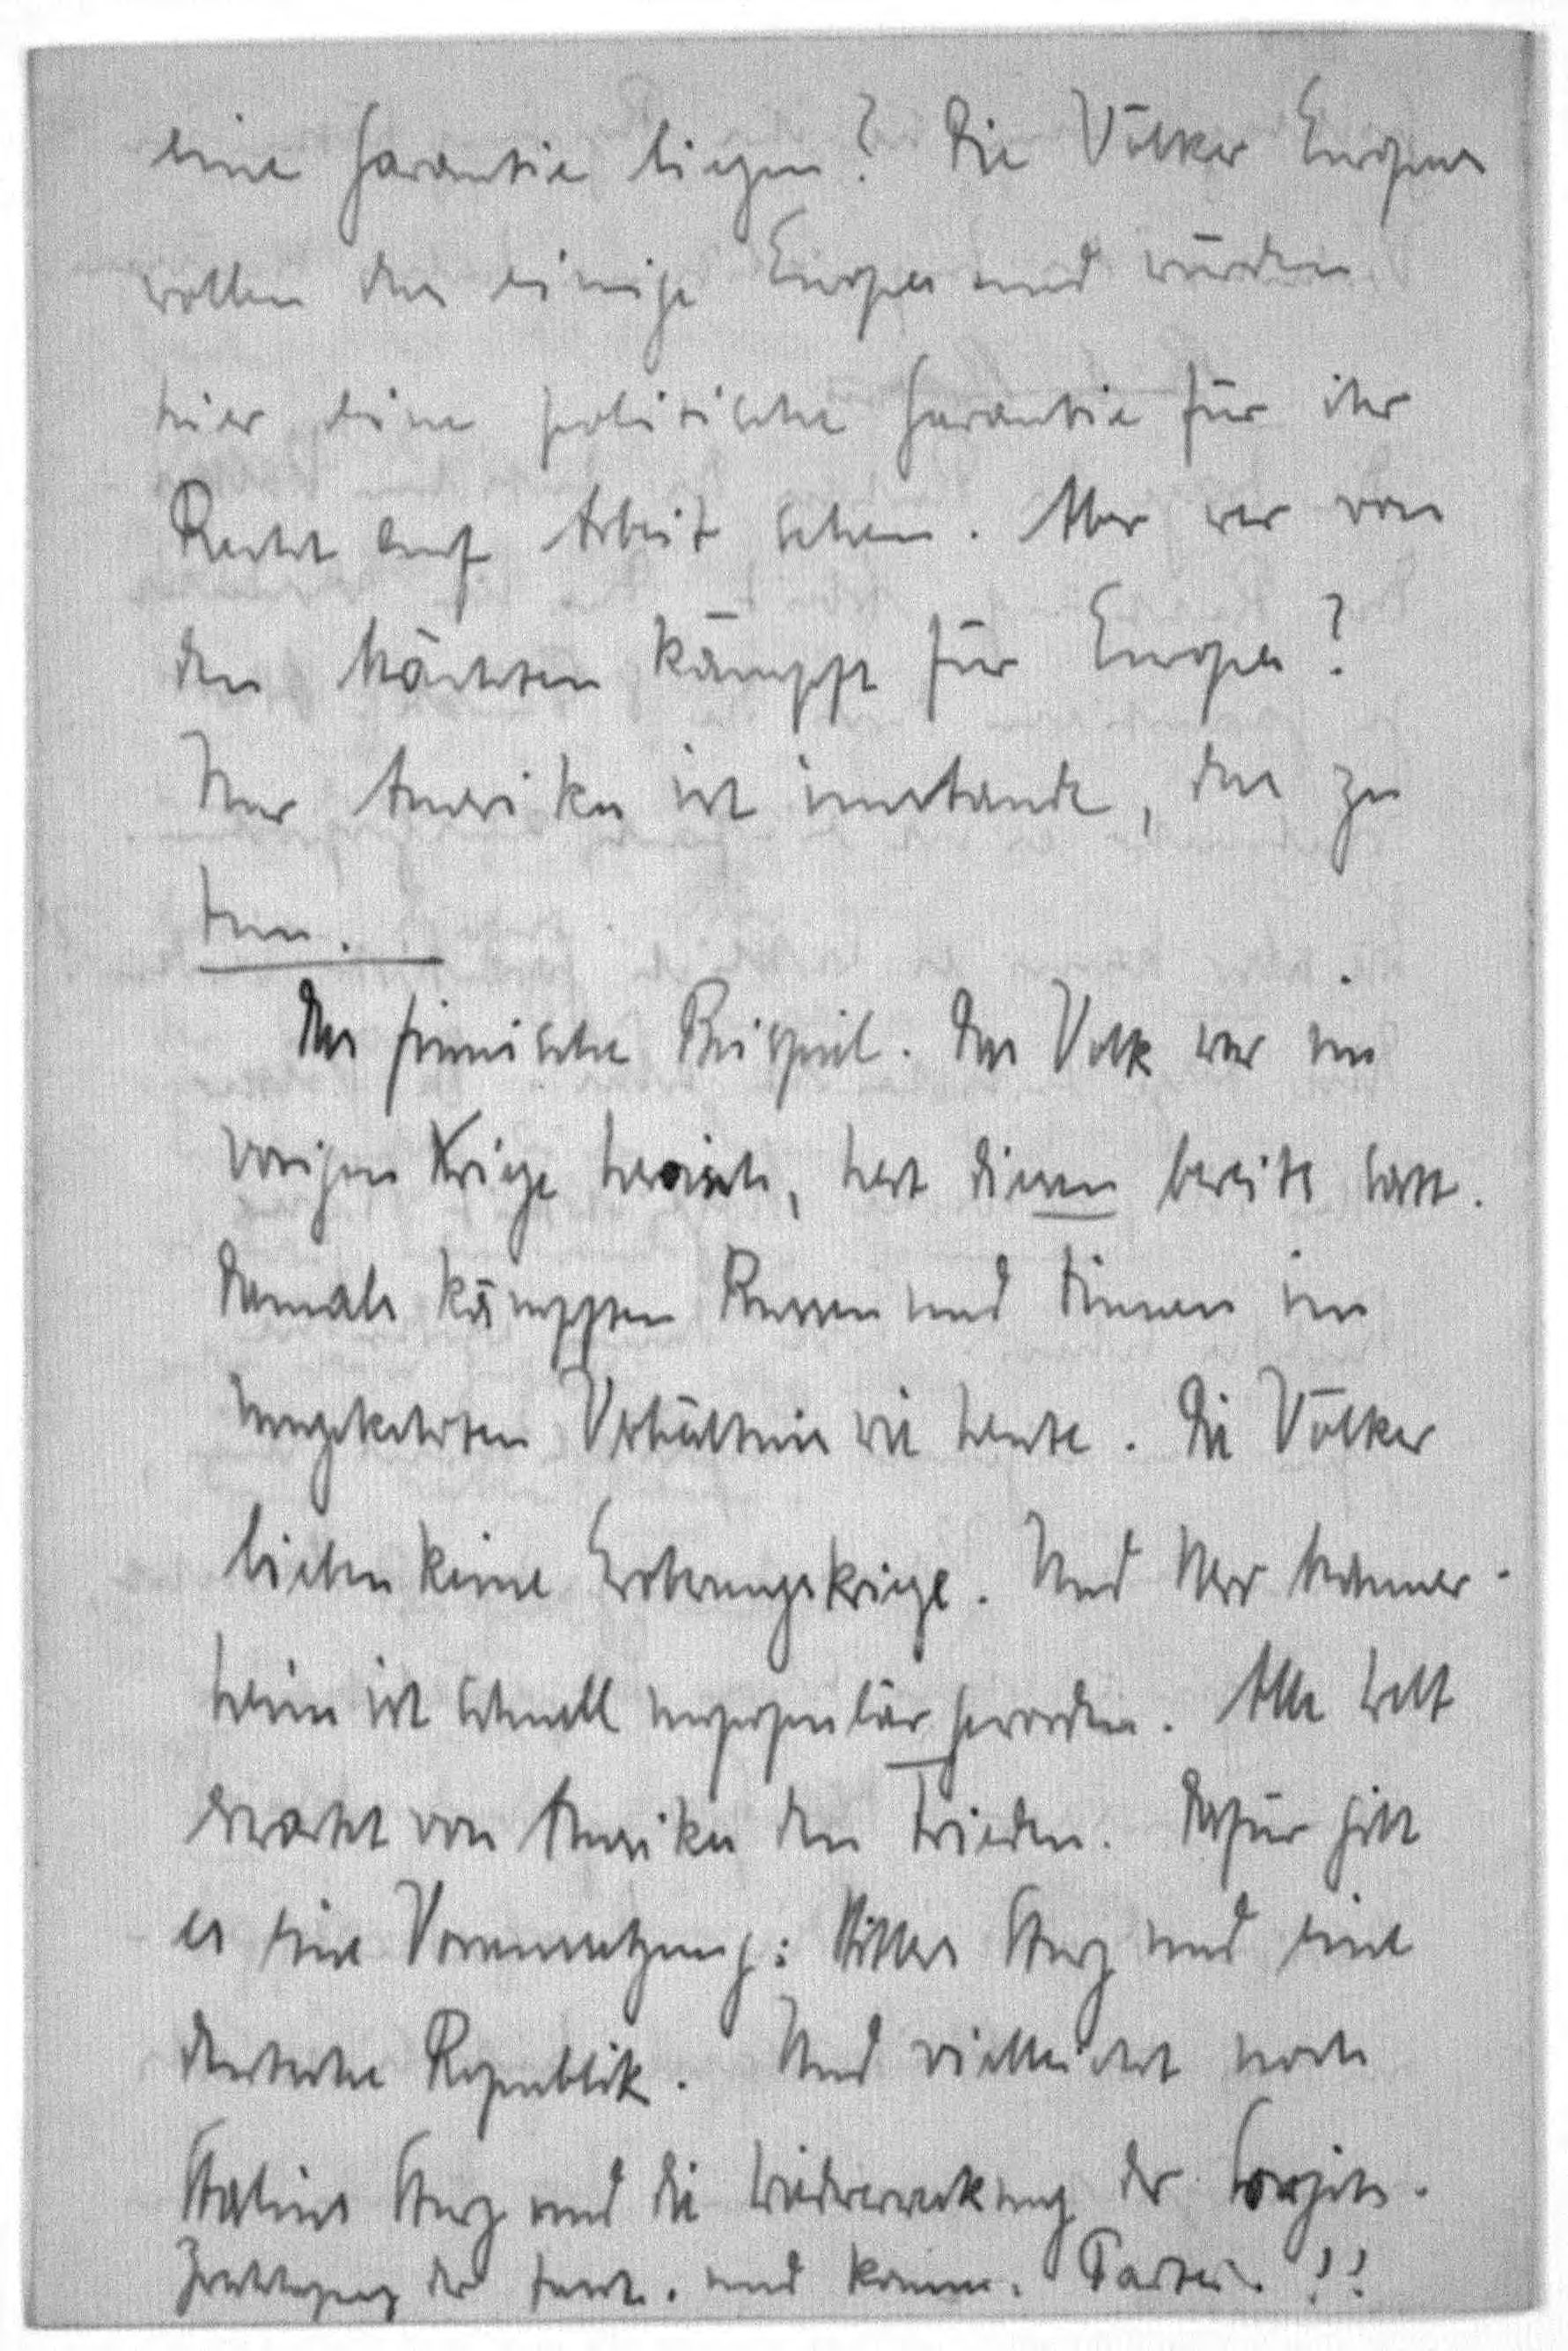 eine Garantie liegen? Die Völker Europas
wollen das einige Europa und würden
hier eine politische Garantie für ihr
Recht auf Arbeit sehen. Aber wer von
den Mächten kämpft für Europa?
Nur Amerika ist imstande, das zu
tun.
Das finnische Beispiel. Das Volk war im
vorigen Kriege heroisch, hat diesen bereits satt.
Damals kämpften Russen und Finnen im
umgekehrten Verhältnis wie heute. Die Völker
lieben keine Eroberungskriege. Und Herr Manner-
heim ist schnell unpopulär geworden. Alle Welt
erwartet von Amerika den Frieden. Dafür gibt
es eine Voraussetzung: Hitlers Sturz und eine
deutsche Republik. Und vielleicht noch
Stalins Sturz und die Wiedererweckung der Sowjets.
der und komm. Partei!!